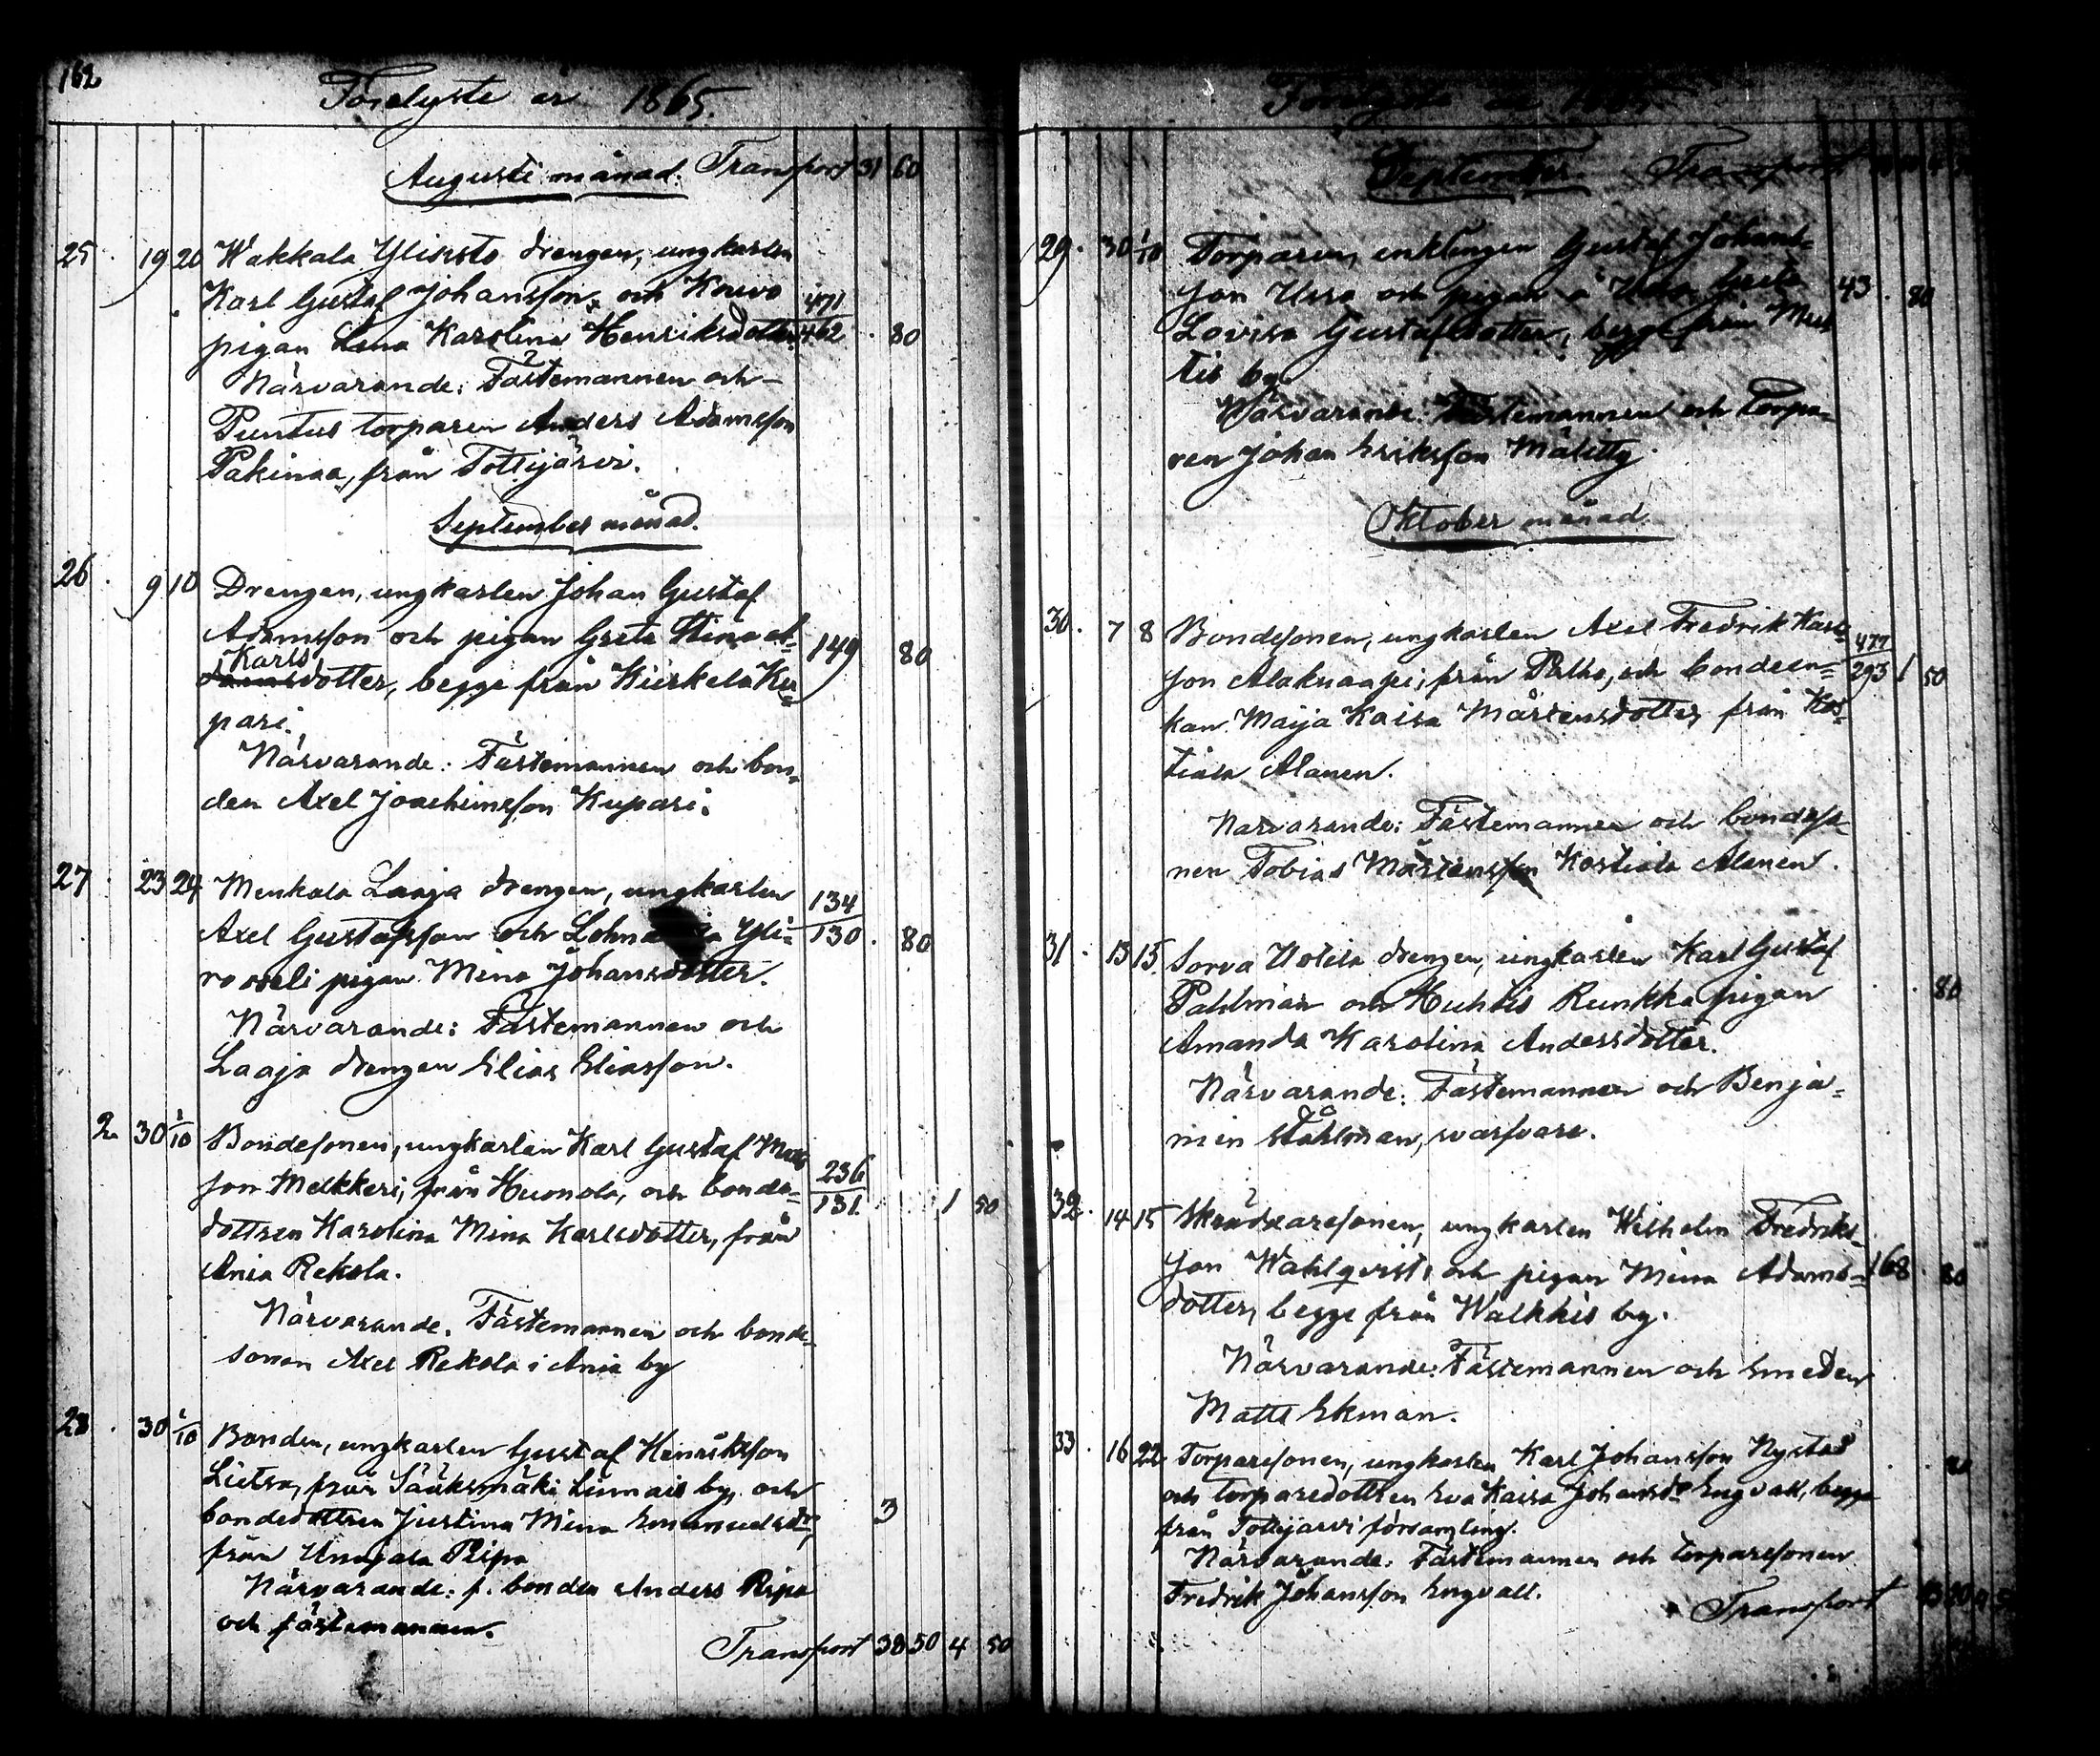 162
Förelyste år 1865.
Augusti månad. Transport 31 60
25. 19 20 Wakkala Ylisisto drengen, ungkarlen
Karl Gustaf Johansson, och Kouvo 471
pigan Lena Karolina Henriksdotter. 462 . 80
Närvarande: Fästemannen och
Puntus torparen Anders Adamsson
Pakinaa, från Tottijärvi.
September månad.
26. 9 10 Drengen, ungkarlen Johan Gustaf
Adamsson och pigan Greta Stina 149 80
Karls
dotter, begge från Kurkela Ku=
pari.
Närvarande: Fästemannen och bon=
den Axel Joachimsson Kupari.
27. 23 24 Menkala Laaja drengen, ungkarlen 134
Axel Gustafsson och Yli= 130 . 80
rooseli pigan Mina Johansdotter.
Närvarande: Fästemannen och
Laaja drengen Elias Eliasson.
2 30 1/10 Bondesonen, ungkarlen Karl Gustaf Matts
son Melkkeri, från Huonola, och bonde= 236
131 1 50
dottren Karolina Mina Karlsdotter, från
Ania Rekola.
Närvarande. Fästemannen och bonde=
sonen Axel Rekola i Ania by
28. 30 1/10 Bonden, ungkarlen Gustaf Henriksson
Lietsa, från Sääksmäki Liunais by, och
bondedottren Justina Mina Emanuelsdr, 3
från Unajala Ripa
Närvarande: f. bonden Anders Ripa
och fästemannen.
Transport 38 50 4 50
Förelyste år 1865
September. Transport
29. 30 1/10 Torparen, enklingen Gustaf Johans=
son Ussa och pigan å Ussa Greta 43 . 80
Lovisa Gustafsdotter, begge från
tis by.
Närvarande: Fästemannen och torpa=
ren Johan Eriksson Mälitty.
Oktober månad.
30. 7 8 Bondesonen, ungkarlen Axel Fredrik Karls= 477
son Alaknaapi, från Palho, och bondeen= 293 1 50
kan Maija Kaisa Mårtensdotter, från Kos=
tiala Alanen.
Närvarande: Fästemannen och bondeso=
nen Tobias Mårtensson Kostiala Alanen.
31. 13 15. Sorva Uotila drengen, ungkarlen Karl Gustaf
Pahlman och Huhtis Runkka pigan . . 80
Amanda Karolina Andersdotter.
Närvarande: Fästemannen och Benja=
min Ståhlman, svarfvare.
32. 14 15 Skräddaresonen, ungkarlen Wilhelm Fredriks=
son Wahlqvist, och pigan Mina Adams= 168 . 80
dotter, begge från Walkkis by.
Närvarande: Fästemannen och smeden
Matts Ekman.
33. 16 22 Torparesonen, ungkarlen Karl Johansson Nystad
och torparedottren Eva Kaisa Johansdr Engvall, begge
från Tottijärvi församling.
Närvarande: Fästemannen och torparesonen
Fredrik Johansson Engvall.
Transport